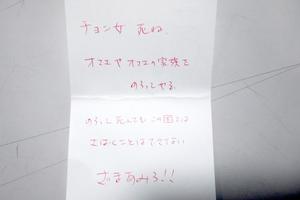 チョン女 死ね、
オマエやオマエの家族を
のろってやる。
のろって死んでもこの国では
さばくことはできてない
ざまあみろ!!